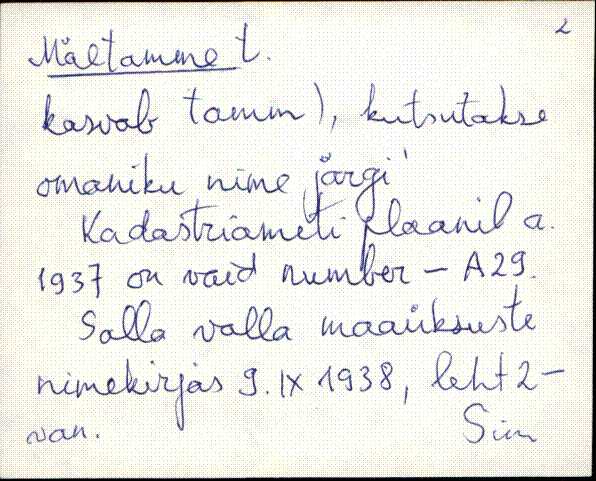 2
Mäetamme t.
kasvab tamm), kutsutakse
omaniku nime järgi
Kadastriameti plaanil a.
1937 on vaid number – A29.
Salla valla maaüksuste
nimekirjas 9. IX 1938, leht 2 –
van.